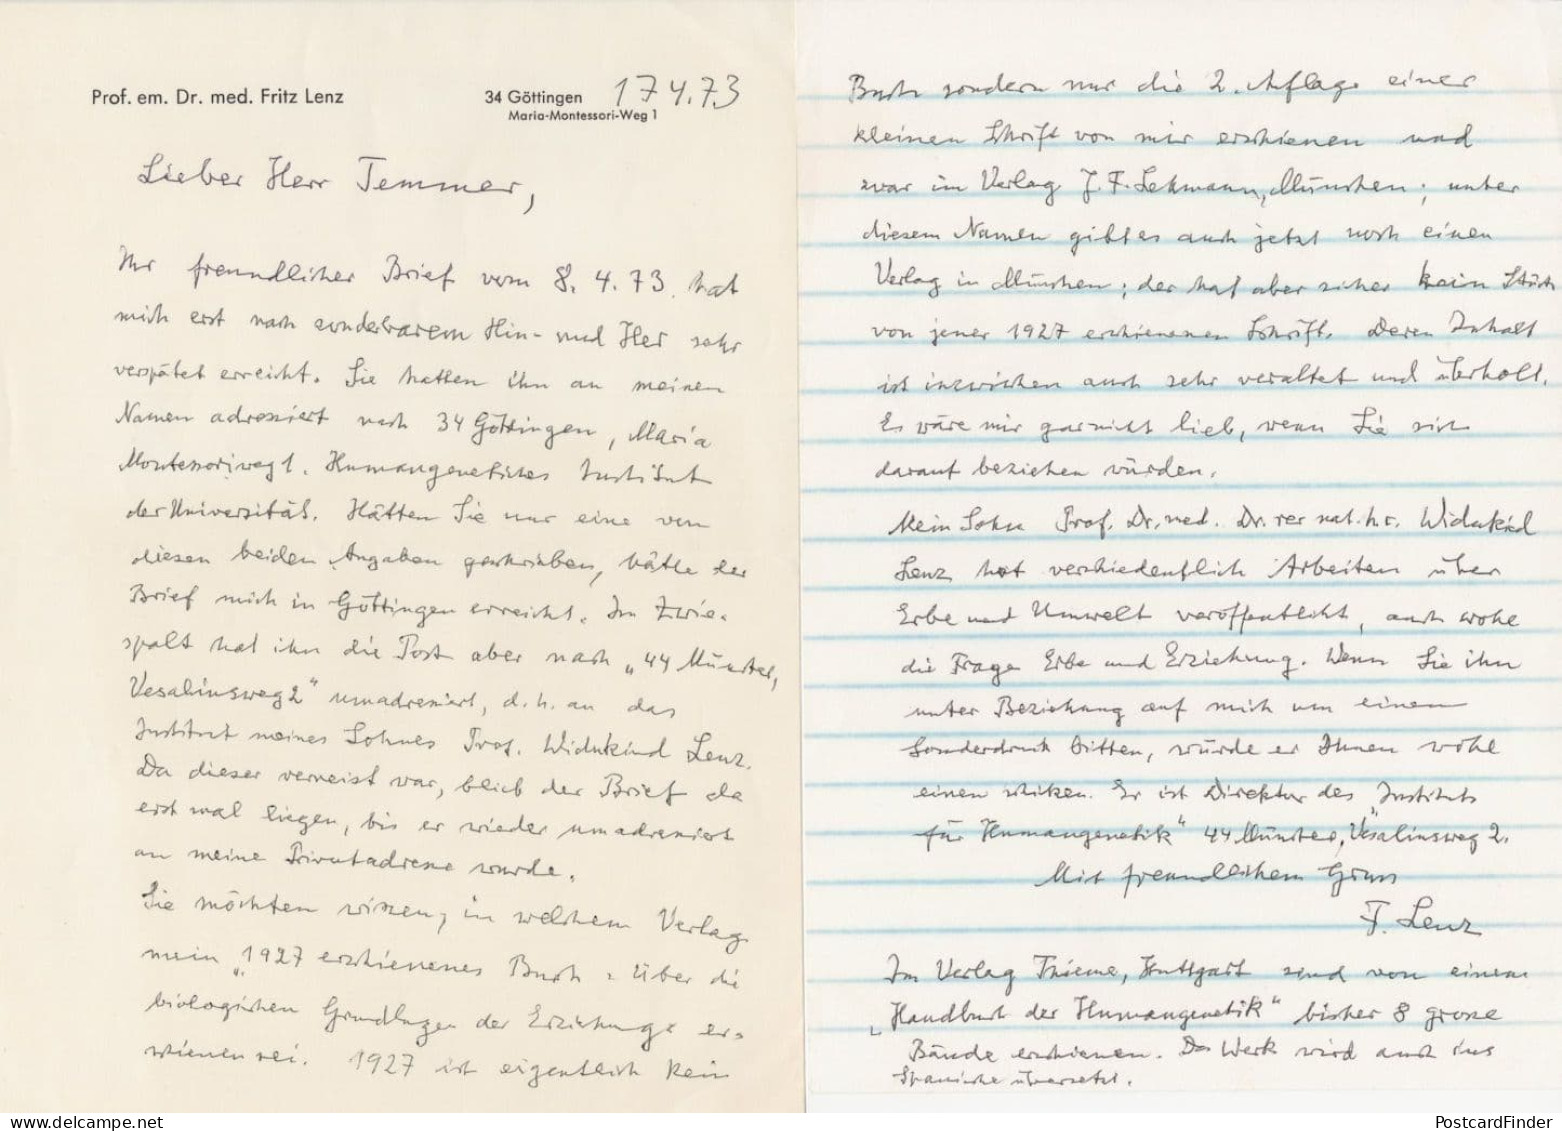 Prof. em. Dr. med. Fritz Lenz
34 Göttingen 17 4.73
Maria-Montessori-Weg 1
Lieber Herr Temmer,
Ihr freundlicher Brief vom 8. 4. 73 hat
mich erst nach sonderbarem Hin- und Her sehr
verspätet erreicht. Sie hatten ihn an meinen
Namen adressiert nach 34 Göttingen, Maria
Montessoriweg 1. Humangenetisches Institut
der Universität. Hätten Sie nur eine von
diesen beiden Angaben geschrieben, hätte der
Brief mich in Göttingen erreicht. Im Zwie-
spalt hat ihn die Post aber nach "44 Münster,
Vesaliusweg 2" umadressiert, d. h. an das
Institut meines Sohnes Prof. Widukind Lenz.
Da dieser verreist war, blieb der Brief da
erst mal liegen, bis er wieder umadressiert
an meine Privatadresse wurde.
Sie möchten wissen, in welchem Verlag
mein "1927 erschienenes Buch - über die
biologischen Grundlagen der Erziehung er-
schienen sei. 1927 ist eigentlich kein
Buch sondern nur die 2. Aflage einer
kleinen Schrift von mir erschienen und
zwar im Verlag J. F. Lehmann, München; unter
diesem Namen gibt es auch jetzt noch einen
Verlag in München; der hat aber sicher kein Stück
von jener 1927 erschienenen Schrift. Deren Inhalt
ist inzwischen auch sehr veraltet und überholt.
Es wäre mir garnicht lieb, wenn Sie sich
darauf beziehen würden.
Mein Sohn Prof. Dr. med. Dr. rer nat. h c. Widukind
Lenz hat verschiedentlich Arbeiten über
Erbe und Umwelt veröffentlicht, auch wohl
die Frage Erbe und Erziehung. Wenn Sie ihn
unter Beziehung auf mich um einen
Sonderdruck bitten, würde er Ihnen wohl
einen schicken. Er ist Direktor des "Instituts
für Humangenetik" 44 Münster, Vesaliusweg 2.
Mit freundlichem Gruss
F. Lenz
Im Verlag Thieme, Stuttgart sind von einem
"Handbuch der Humangenetik" bisher 8 grosse
Bände erschienen. Das Werk wird auch ins
Spanische übersetzt.
PostcardFinder